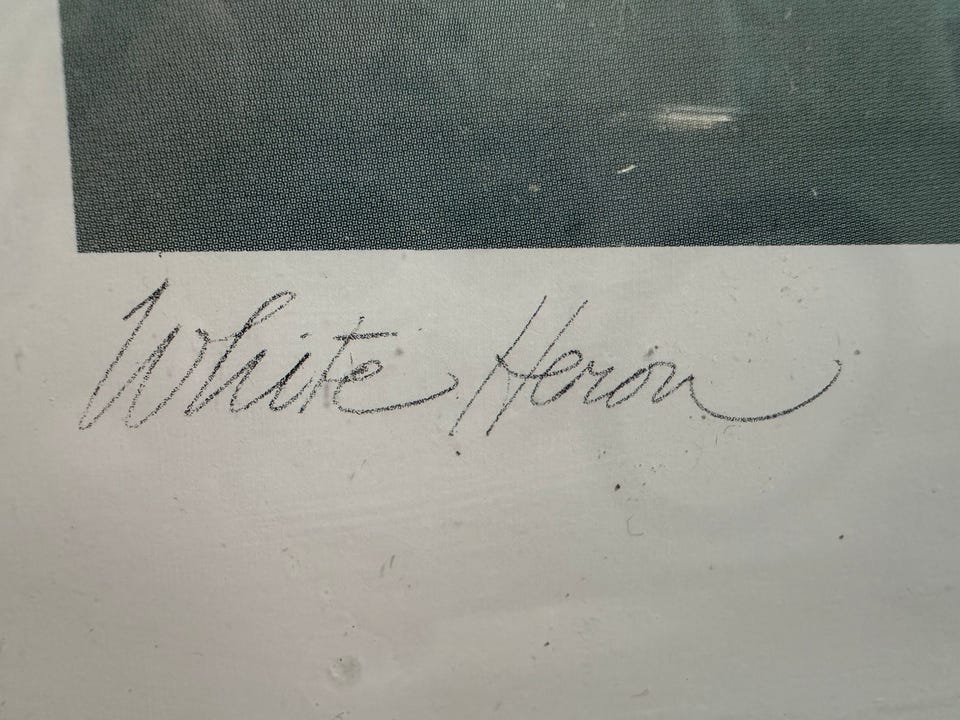 White Heron